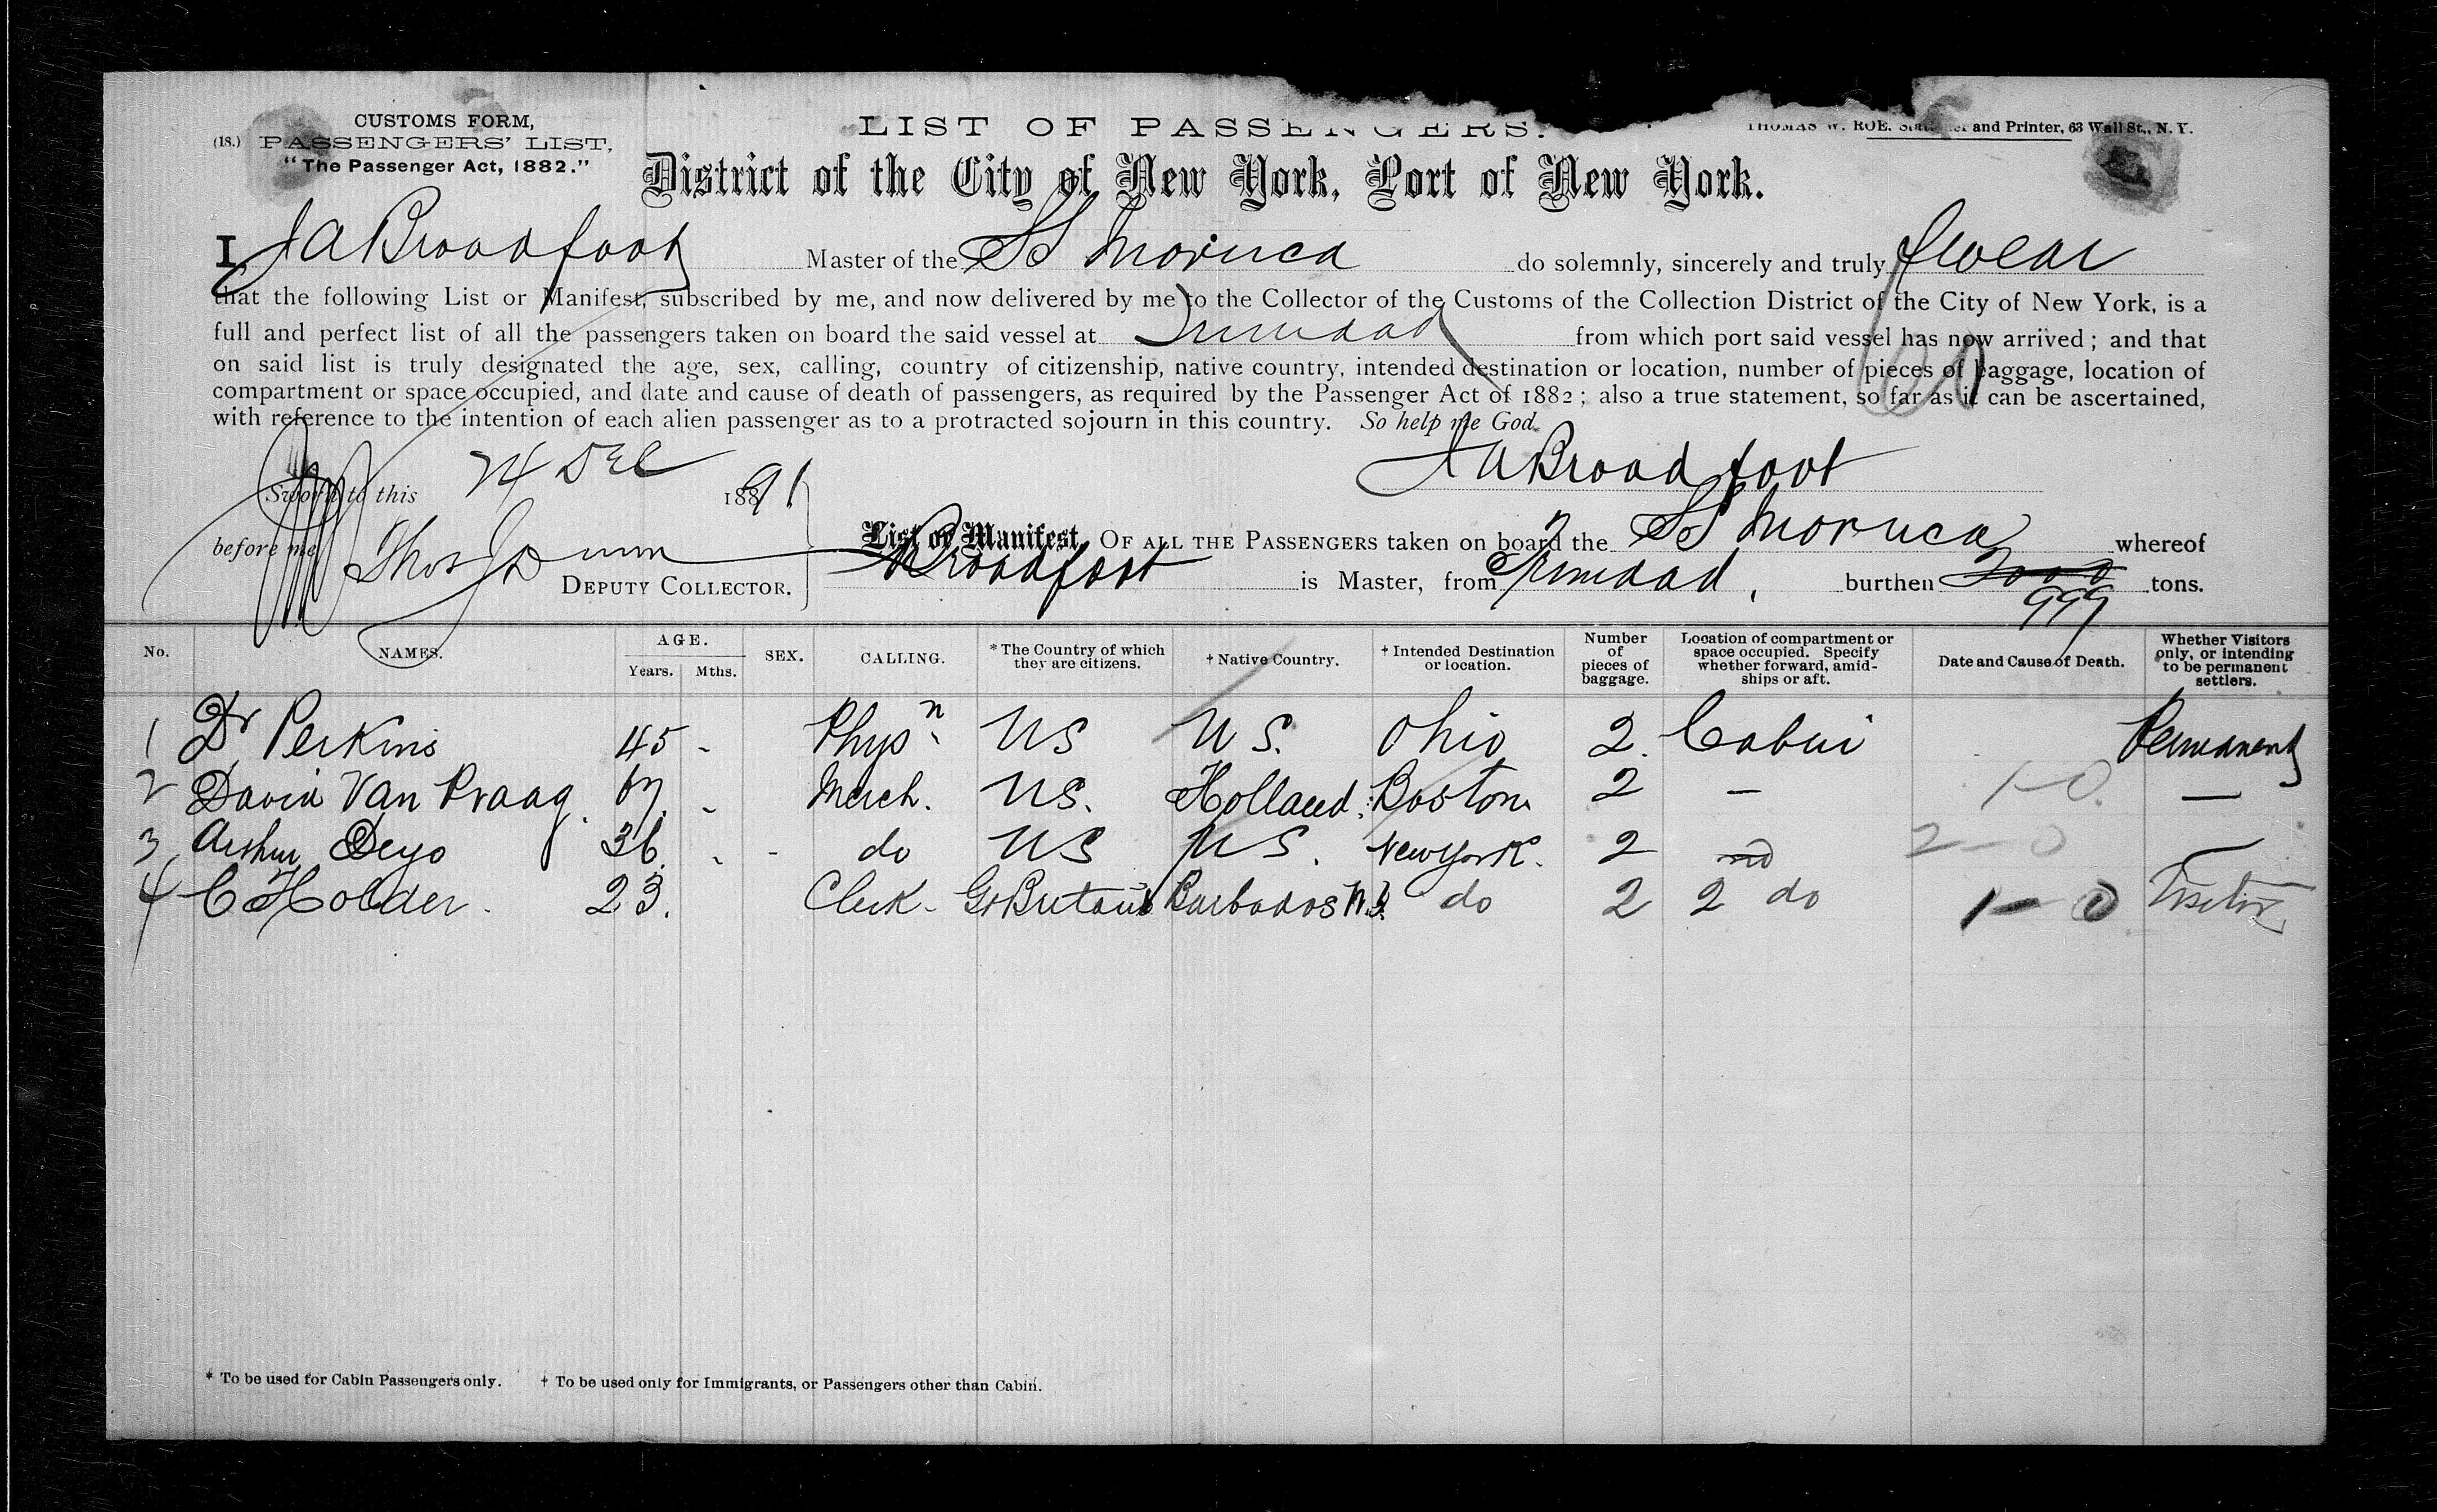 CUSTOMS FORM,
(18.) PASSENGERS' LIST,
"The Passenger Act, 1882."
LIST OF PASSENGERS.
THOMAS W. ROE, and Printer, 63 Wall St., N. Y.
District of the City of New York, Port of New York.
I, J A Broadfoot Master of the SS Moruca do solemnly, sincerely and truly swear
that the following List or Manifest, subscribed by me, and now delivered by me to the Collector of the Customs of the Collection District of the City of New York, is a
full and perfect list of all the passengers taken on board the said vessel at Trinidad from which port said vessel has now arrived; and that
on said list is truly designated the age, sex, calling, country of citizenship, native country, intended destination or location, number of pieces of baggage, location of
compartment or space occupied, and date and cause of death of passengers, as required by the Passenger Act of 1882; also a true statement, so far as it can be ascertained,
with reference to the intention of each alien passenger as to a protracted sojourn in this country. So help me God.
J A Broadfoot
Sworn to this 24 Dec 1891
before me Thos J Dunn
DEPUTY COLLECTOR.
List or Manifest, OF ALL THE PASSENGERS taken on board the SS Moruca whereof
Broadfoot is Master, from Trinidad, burthen 2000 tons.
999
No. NAMES. AGE. Years. Mths. SEX. CALLING. * The Country of which they are citizens. † Native Country. † Intended Destination or location. Number of pieces of baggage. Location of compartment or space occupied. Specify whether forward, amidships or aft. Date and Cause of Death. Whether Visitors only, or intending to be permanent settlers.
1 Dr Perkins 45 - Physn US US. Ohio 2. Cabin Permanent
2 David Van Praag. 67. - Merch. US. Holland. Boston 2 — 1-0. —
3 Arthur Deyo 36. - - do US US. New York. 2 2-0 —
4 C Holder. 23. Clerk - Gt Britain Barbados W.I. do 2 2 do 1-0 Visitor
* To be used for Cabin Passengers only. † To be used only for Immigrants, or Passengers other than Cabin.